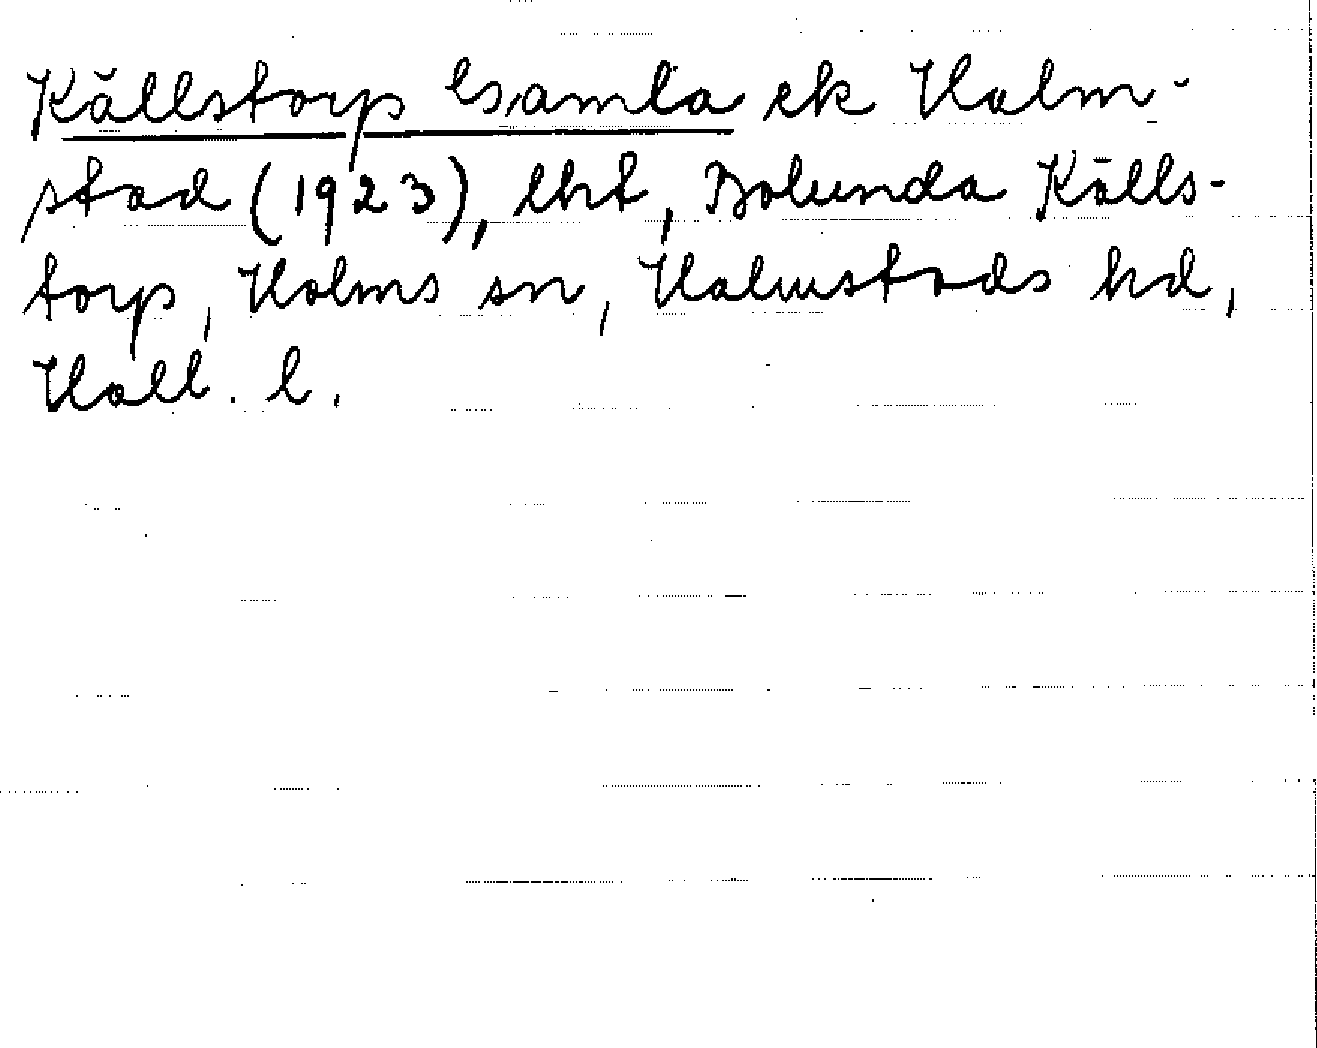 Källstorp Gamla ek Halm-
stad (1923), lht, Bolunda Källs-
torp, Holms sn, Halmstads hd,
Hall. l.